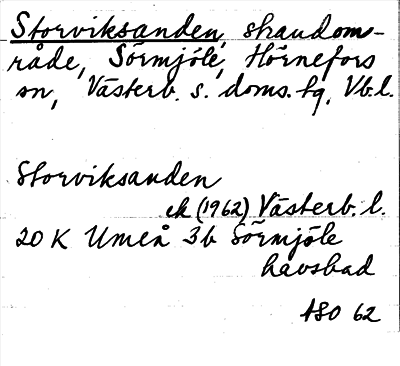 Storviksanden, strandom-
råde, Sörmjöle, Hörnefors
sn, Västerb. s. doms. hg, Vb.l.
Storviksanden
ek (1962) Västerb. l.
20 K Umeå 3b Sörmjöle
havsbad
ASO 62